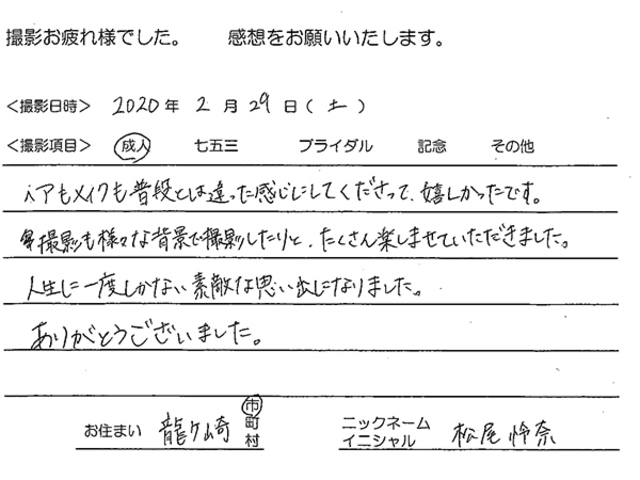 撮影お疲れ様でした。 感想をお願いいたします。
＜撮影日時＞ 2020年 2月 29日(土)
＜撮影項目＞ 成人 七五三 ブライダル 記念 その他
ヘアもメイクも普段とは違った感じにしてくださって、嬉しかったです。
撮影も様々な背景で撮影したりと、たくさん楽しませていただきました。
人生に一度しかない素敵な思い出になりました。
ありがとうございました。
お住まい 龍ヶ崎 市町村 ニックネーム イニシャル 松尾 怜奈